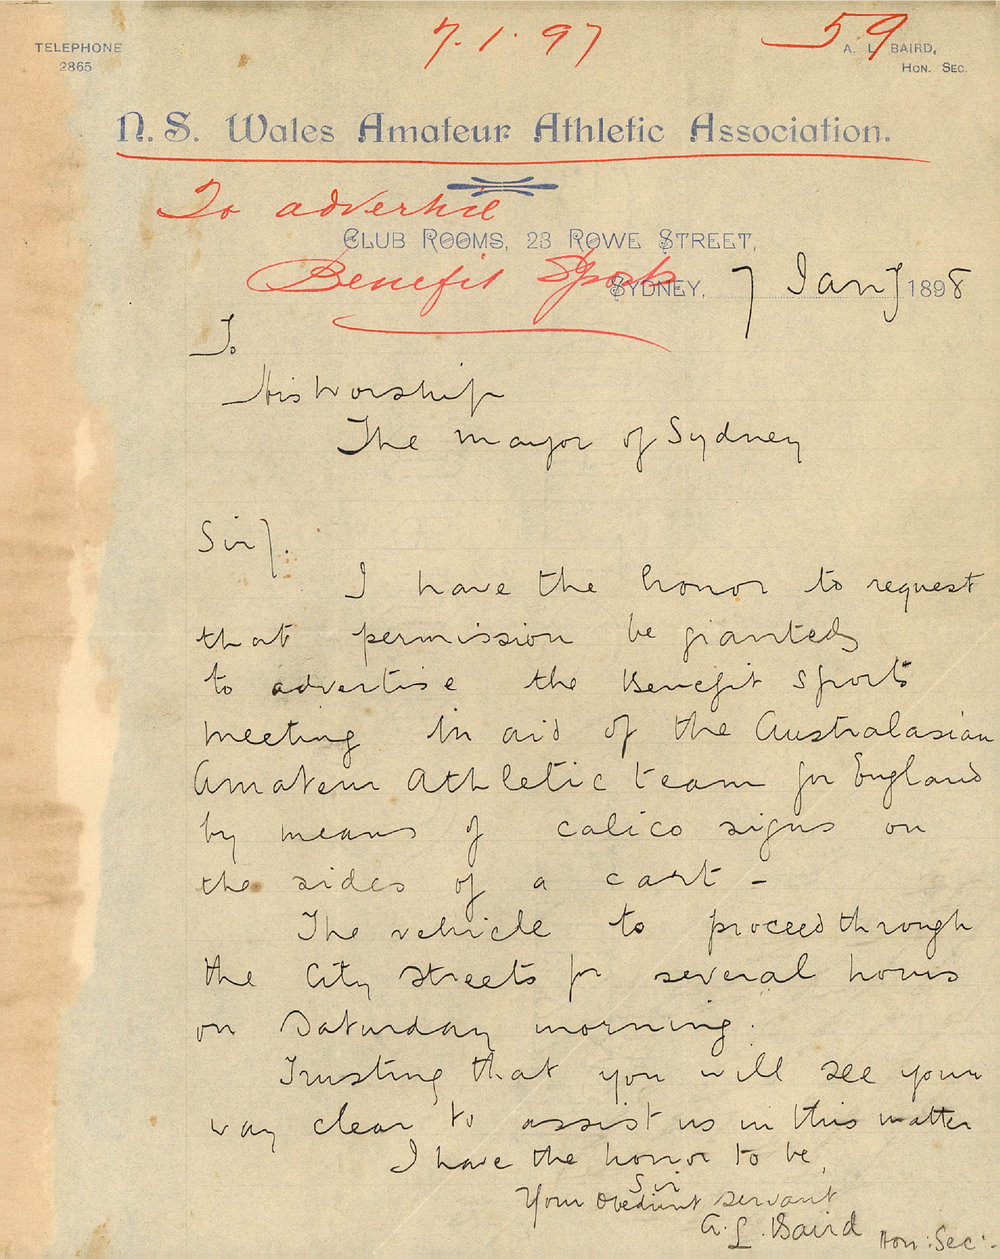 7.1.97
59
TELEPHONE
2865
A. L. BAIRD,
HON. SEC.
N. S. Wales Amateur Athletic Association.
To advertise
CLUB ROOMS, 23 ROWE STREET,
Benefit Sports
SYDNEY, 7 Jany 1898
To
His Worship
The Mayor of Sydney
Sir).
I have the honor to request
that permission be granted
to advertise the Benefit Sports
meeting in aid of the Australasian
Amateur Athletic team for England
by means of calico signs on
the sides of a cart -
The vehicle to proceed through
the City Streets for several hours
on Saturday morning.
Trusting that you will see your
way clear to assist us in this matter
I have the honor to be,
Sir
Your obedient servant
A. L. Baird Hon: Sec: -